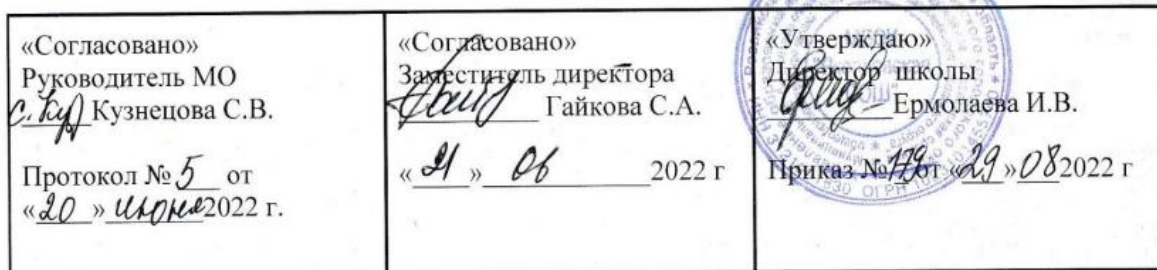 «Согласовано»
Руководитель МО
С. Куз Кузнецова С.В.
Протокол № 5 от
«20» июня 2022 г.
«Согласовано»
Заместитель директора
Гайкова С.А.
«21» 06 2022 г
«Утверждаю»
Директор школы
Ермолаева И.В.
Приказ №179 от «29» 08 2022 г
ОГРН